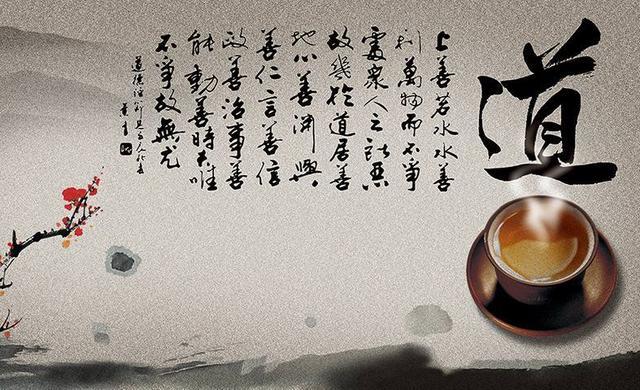 道
上善若水水善
利萬物而不爭
處衆人之所惡
故幾於道居善
地心善淵與
善仁言善信
政善治事善
能動善時夫唯
不爭故無尤
道德經